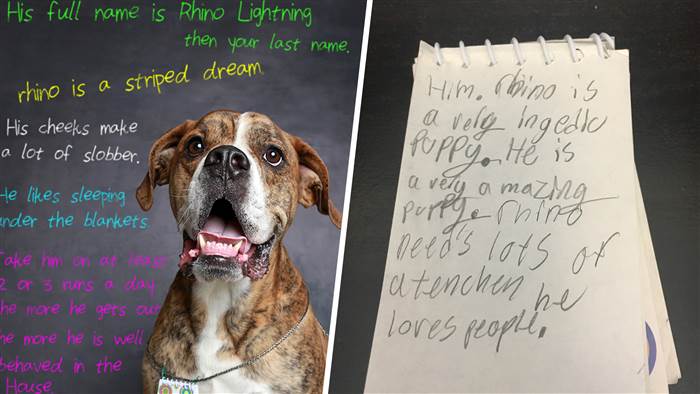 His full name is Rhino Lightning
then your last name.
rhino is a striped dream.
His cheeks make
a lot of slobber.
He likes sleeping
under the blankets
Take him on at least
2 or 3 runs a day
the more he gets out
the more he is well
behaved in the
House.
Him. rhino is
a very ingedic
PUPPy. He is
a very a mazing
PUPPy. rhino
needs lots of
atenchen he
loves people.